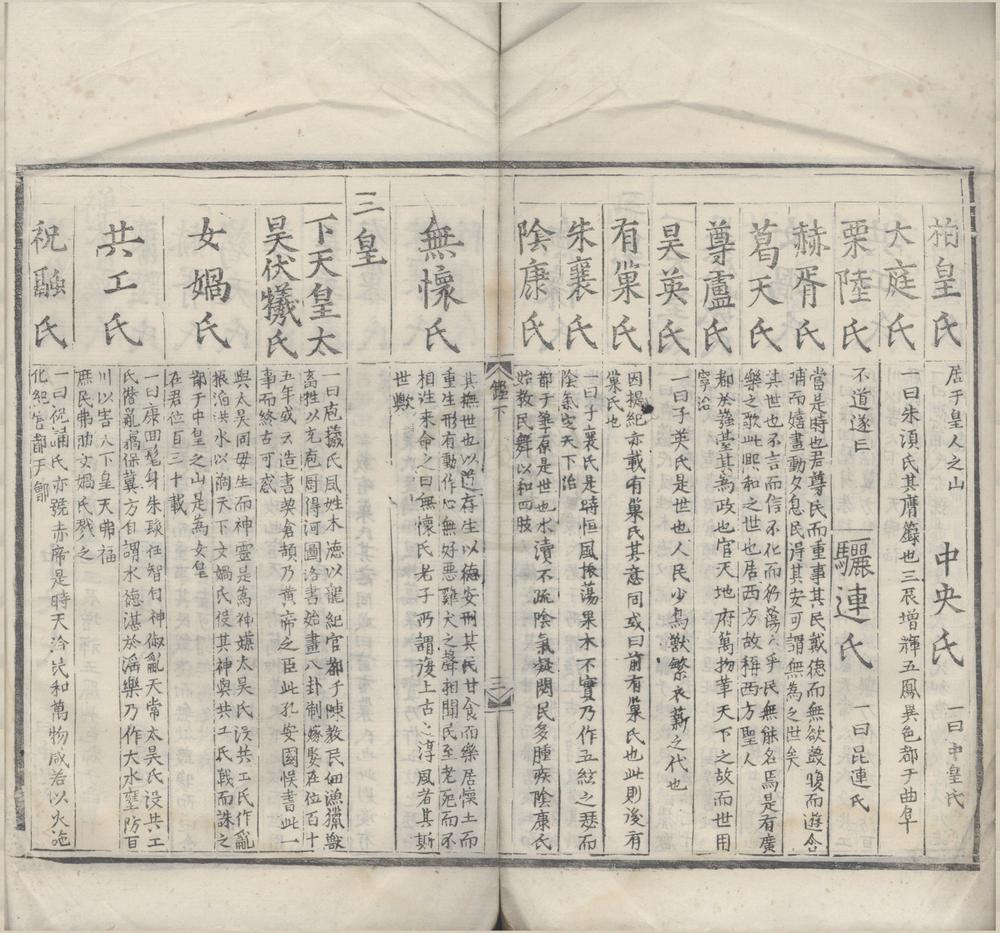 柏皇氏 居于皇人之山 中央氏 一曰中皇氏
大庭氏 一曰朱湏氏其膺籙也三辰增輝五鳳異色都于曲阜
栗陸氏 不道遂亡 驪連氏 一曰昆連氏
赫胥氏 當是時也君尊民而重事其民戴德而無欲鼓腹而遊含
哺而嬉晝動夕息民得其安可謂無為之世矣
葛天氏 其世也不言而信不化而行蕩々乎民無能名焉是有廣
樂之歌此熈和之世也居西方故称西方聖人
尊盧氏 都於強臺其為政也官天地府萬物華天下之故而世用
寧治
昊英氏 一曰子英氏是世也人民少鳥獸繁衣薪之代也
有巢氏 因提紀亦載有巢氏其意同或曰前有巢氏也此則後有
巢氏也
朱襄氏 一曰子襄氏是時恒風振蕩果木不實乃作五絃之瑟而
陰氣定天下治
陰康氏 都于華原是世也水瀆不疏陰氣凝閟民多腫疾陰康氏
始教民舞以和四肢
鑑下 三
無懷氏 其撫世也以道存生以德安刑其民甘食而樂居懷土而
重生形有動作心無好惡雞犬之聲相聞民至老死而不
相往来命之曰無懷氏老子所謂復上古之淳風者其斯
世歟
三皇
下天皇太 一曰庖犧氏風姓木德以龍紀官都于陳教民佃漁獵獸
昊伏犧氏 畜牲以充庖厨得河圖洛書始畫八卦制嫁娶在位百十
五年或云造書契倉頡乃黄帝之臣此孔安國候書此一
事而終古可惑
女媧氏 與太昊同母生而神靈是為神媒太昊氏没共工氏作亂
振滔洪水以禍天下女媧氏役其神與共工氏戰而誅之
都于中皇之山是為女皇
在君位百三十載
共工氏 一曰康回髦身朱髮任智自神俶亂天常太昊氏没共工
氏僭亂禍保冀方自謂水德湛於滛樂乃作大水壅防百
川以害天下皇天弗福
庶民弗助女媧氏戮之
祝融氏 一曰倪誦氏亦號赤帝是時天洽民和萬物咸若以火施
化紀官都于鄶